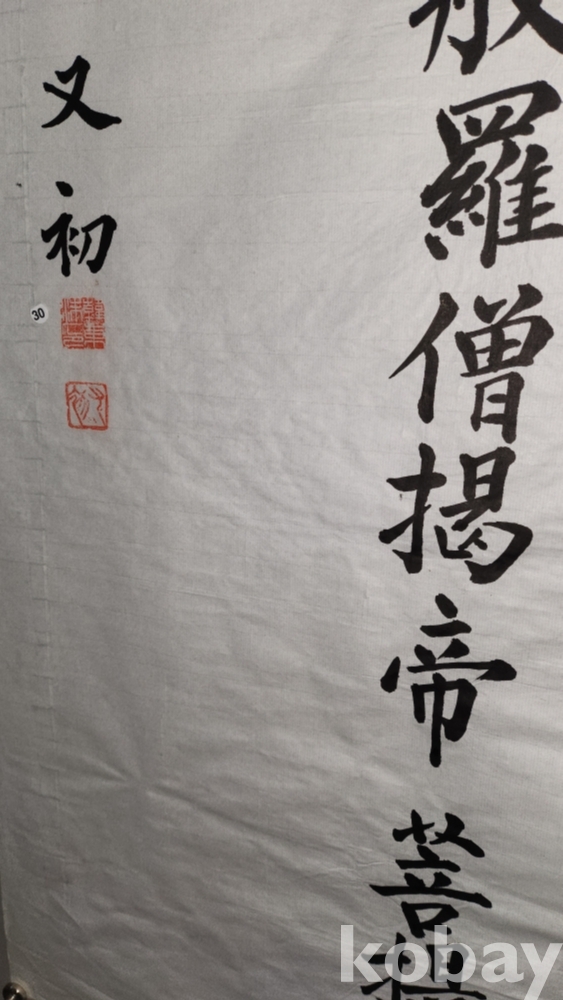 羅僧揭帝菩
又初
30
kobay